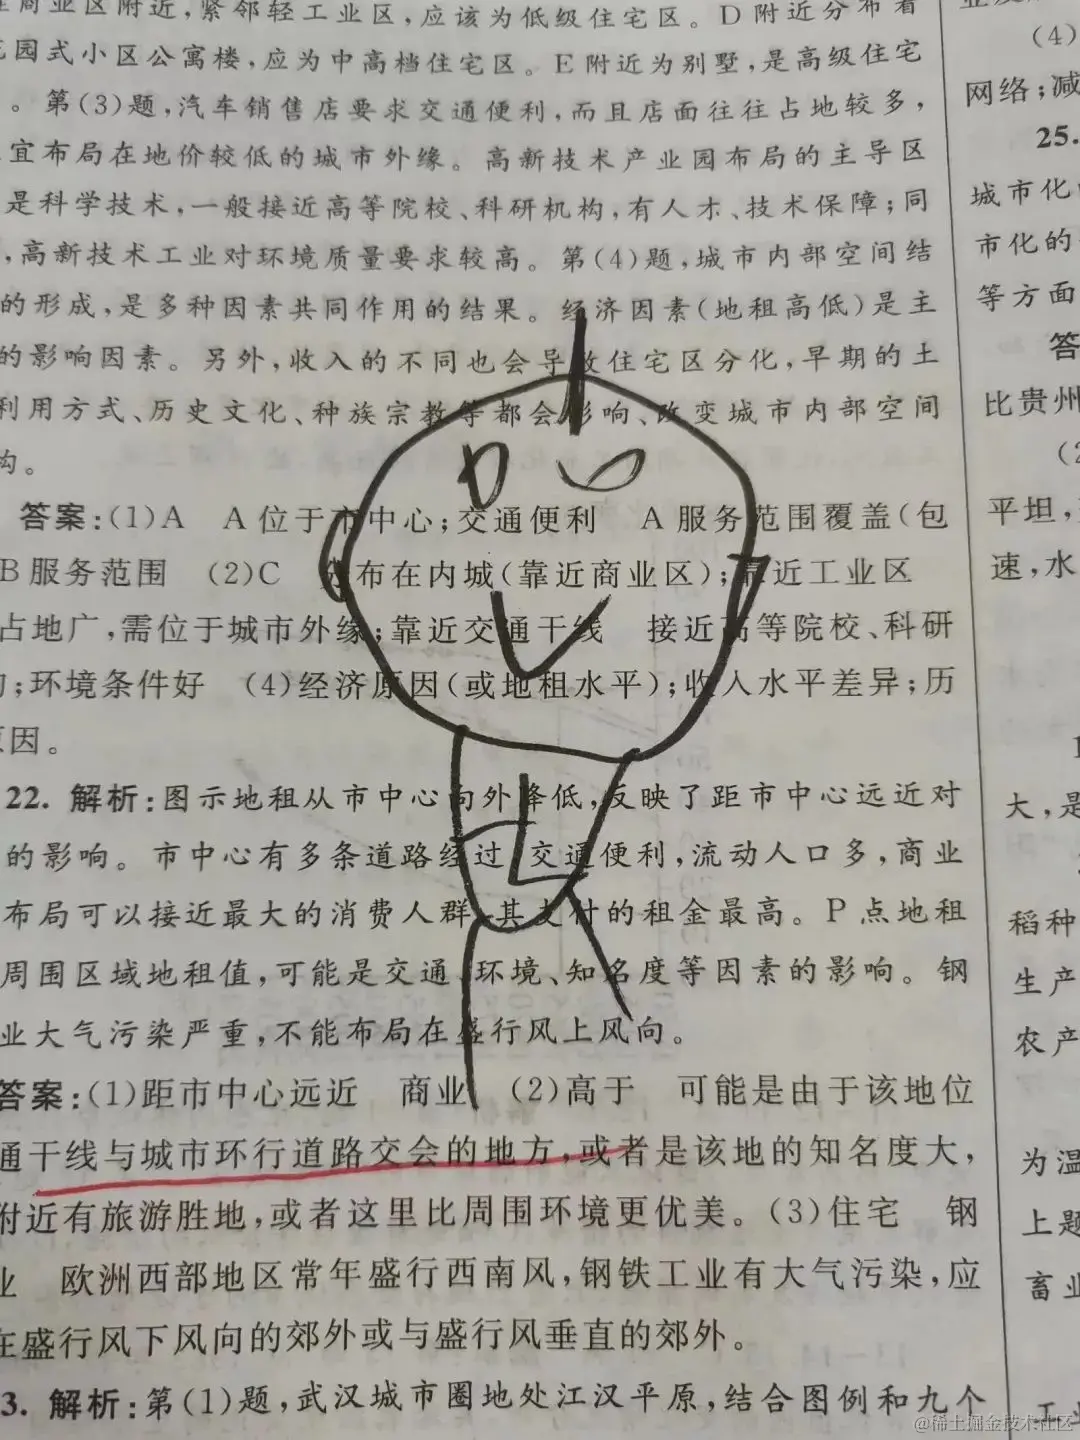 商业区附近,紧邻轻工业区,应该为低级住宅区。D附近分布着
园式小区公寓楼,应为中高档住宅区。E附近为别墅,是高级住宅
。第(3)题,汽车销售店要求交通便利,而且店面往往占地较多,
宜布局在地价较低的城市外缘。高新技术产业园布局的主导区
是科学技术,一般接近高等院校、科研机构,有人才、技术保障;同
,高新技术工业对环境质量要求较高。第(4)题,城市内部空间结
的形成,是多种因素共同作用的结果。经济因素(地租高低)是主
的影响因素。另外,收入的不同也会导致住宅区分化,早期的土
利用方式、历史文化、种族宗教等都会影响、改变城市内部空间
构。
答案:(1)A A位于市中心;交通便利 A服务范围覆盖(包
B服务范围 (2)C 分布在内城(靠近商业区);靠近工业区
占地广,需位于城市外缘;靠近交通干线 接近高等院校、科研
;环境条件好 (4)经济原因(或地租水平);收入水平差异;历
原因。
22. 解析:图示地租从市中心向外降低,反映了距市中心远近对
的影响。市中心有多条道路经过,交通便利,流动人口多,商业
布局可以接近最大的消费人群,其支付的租金最高。P点地租
周围区域地租值,可能是交通、环境、知名度等因素的影响。钢
业大气污染严重,不能布局在盛行风上风向。
答案:(1)距市中心远近 商业 (2)高于 可能是由于该地位
通干线与城市环行道路交会的地方,或者是该地的知名度大,
附近有旅游胜地,或者这里比周围环境更优美。(3)住宅 钢
业 欧洲西部地区常年盛行西南风,钢铁工业有大气污染,应
在盛行风下风向的郊外或与盛行风垂直的郊外。
3. 解析:第(1)题,武汉城市圈地处江汉平原,结合图例和九个
(4)
网络;减
25.
城市化
市化的
等方面
答
比贵州
平坦,
速,水
大,是
稻种
生产
农产
为温
上题
畜业
工业
@稀土掘金技术社区